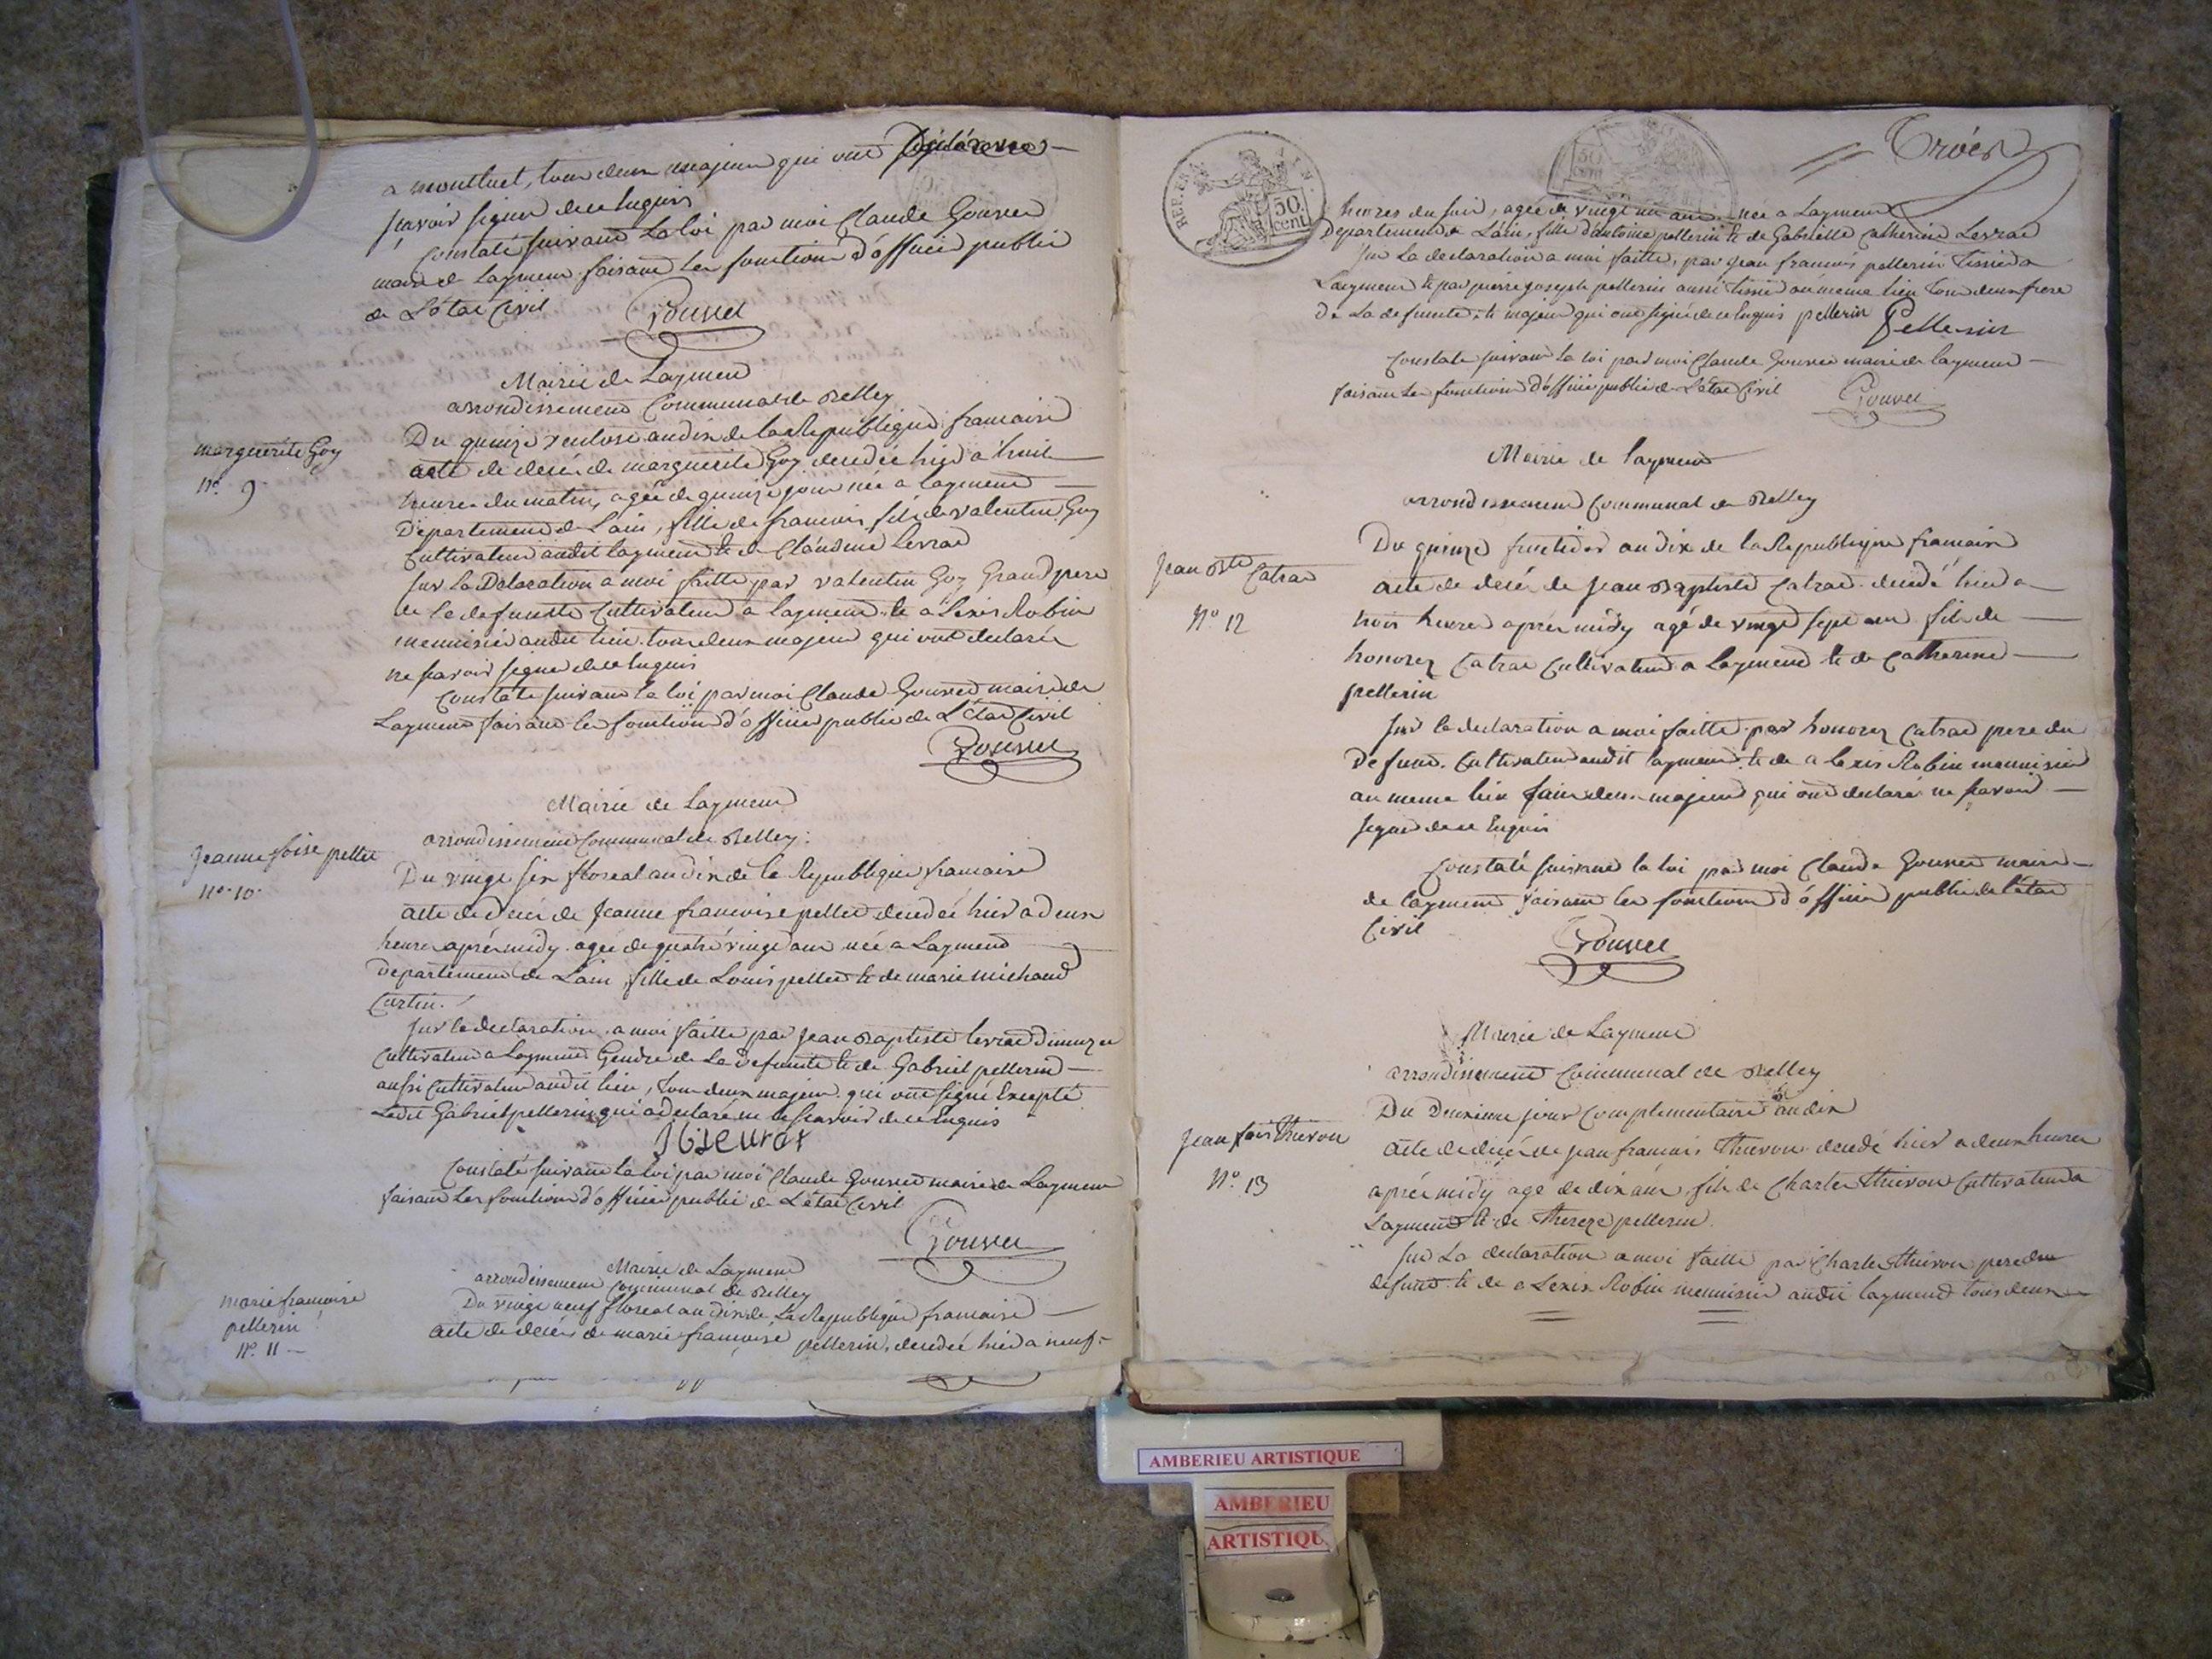 a montluet, tous deux majeur qui ont déclarer ne
scavoir signer de ce enquis
Constaté suivant la loi par moi Claude Gouvet
maire de laymend faisant les fonctions d'officier public
de L'état Civil
Gouvet
Mairie de Laymend
arrondissement Communal de Belley
marguerite Goy
N°. 9
Du quinze ventose an dix de la Republique francaise
acte de décés de marguerite Goy decedée hier a huit
heures du matin, agée de quinze jour née a laymend
Departement de Lain, fille de francois fils de valentin Goy
Cultivateur audit laymend et de Claudine Levrat
sur la Declaration a moi faitte par valentin Goy Grand pere
de la defunte Cultivateur a laymend et alexis Robin
menuisier audit lieu tous deux majeur qui ont declarer
ne scavoir signer de ce enquis
Constaté suivant la loi par moi Claude Gouvet maire de
Laymend faisant les fonctions d'officier public de L'état Civil
Gouvet
Mairie de Laymend
arrondissement Communal de Belley.
Jeanne foise pellet
N°. 10.
Du vingt six floreal an dix de la Republique francaise
acte de décés de Jeanne francoise pellet decedeé hier a deux
heures aprés midy agée de quatre vingt ans née a Laymend
Departement de Lain, fille de Louis pellet et de marie michaud
Curtin.
sur la declaration a moi faitte par Jean Baptiste levrat
Cultivateur a Laymend Gendre de La defunte et de Gabriel pellerin
aussi Cultivateur audit lieu, tous deux majeur qui ont signé Excepté
Ledit Gabriel pellerin qui a declaré ne le scavoir de ce enquis
Constaté suivant la loi par moi Claude Gouvet maire de Laymend
faisant les fonctions d'officier public de L'état Civil
Gouvet
Mairie de Laymend
arrondissement Communal de Belley
marie francoise
pellerin
N°. 11
Du vingt neuf floreal an dix de la Republique francaise
acte de décés de marie francoise pellerin, decedée hier a neuf
Trois
REP. FRA.
50
cent
heures du soir, agée de vingt un ans née a Laymend
Departement de Lain, fille d'antoine pellerin et de Gabrielle Catherine Levrat
sur La declaration a moi faitte, par jean francois pellerin tissier a
Laymend et par pierre joseph pellerin aussi tissier au meme lieu tous deux frere
De La defunte, et majeur qui ont signé de ce enquis pellerin Pellerin
Constaté suivant la loi par moi Claude Gouvet maire de laymend
faisant les fonctions d'officier public de L'état Civil
Gouvet
Mairie de laymend
arrondissement Communal de Belley
Jean Bte Catrat
N° 12
Du quinze fructidor an dix de la Republique francaise
acte de décés de Jean Baptiste Catrat decedé hier a
trois heures aprés midy agé de vingt sept ans fils de
honorez Catrat Cultivateur a Laymend et de Catherine
pellerin
sur la declaration a moi faitte par honorez Catrat pere du
defunt. Cultivateur audit laymend et de alexis Robin menuisier
au meme lieu tous deux majeur qui ont declarer ne scavoir
signer de ce Enquis
Constaté suivant la loi par moi Claude Gouvet maire
de laymend faisant les fonctions d'officier public de l'état
Civil
Gouvet
Mairie de Laymend
arrondissement Communal de Belley
Jean fois Thievon
N°. 13
Du Deuxieme jour Complementaire an dix
acte de décés de jean francois Thievon decedé hier a deux heures
aprés midy agé de dix ans, fils de Charles Thievon Cultivateur a
Laymend et de Thereze pellerin.
sur La declaration a moi faitte par Charles thievon pere du
defunt et de alexis Robin menuisier audit laymend tous deux
AMBERIEU ARTISTIQUE
AMBERIEU
ARTISTIQU